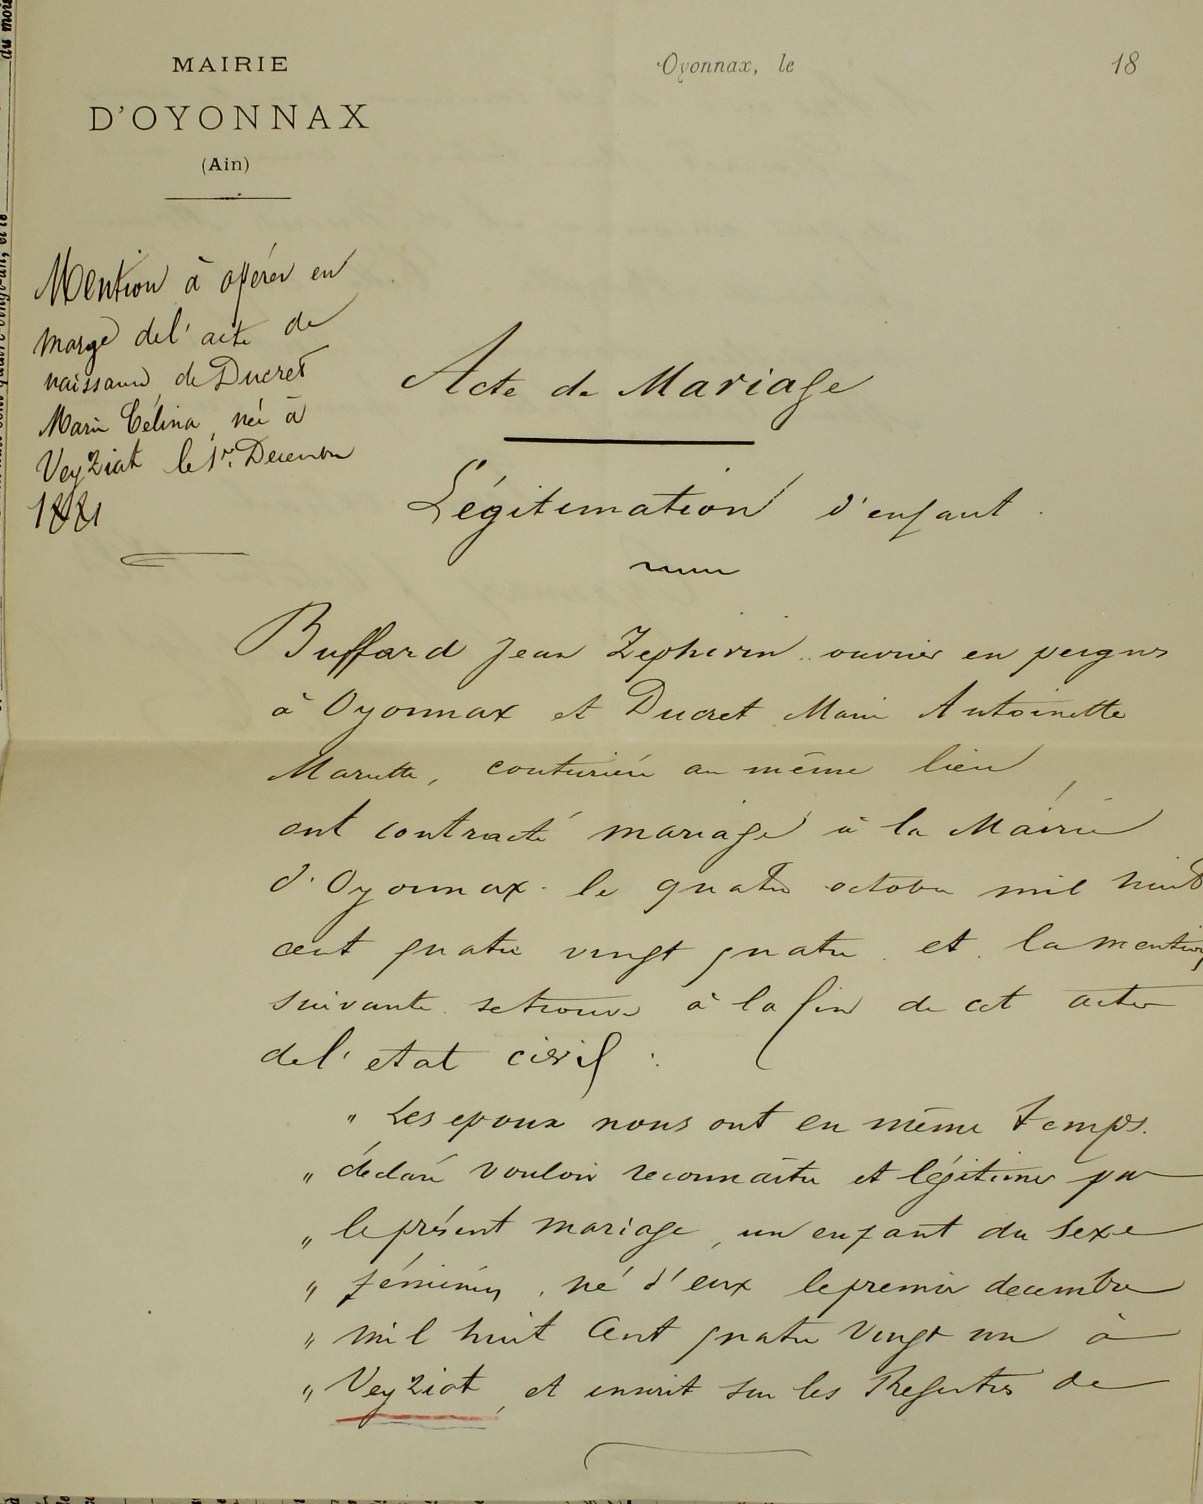 MAIRIE
D'OYONNAX
(Ain)
Oyonnax, le 18
Mention à opérer en
marge de l'acte de
naissance de Ducret
Marie Célina, née à
Veyziat le 1er Décembre
1881
Acte de Mariage
Légitimation d'enfant
Buffard Jean Zephirin ouvrier en peignes
à Oyonnax et Ducret Marie Antoinette
Mariette, couturière au même lieu,
ont contracté mariage à la Mairie
d'Oyonnax le quatre octobre mil huit
cent quatre vingt quatre et la mention
suivante se trouve à la fin de cet acte
de l'etat civil :
" Les epoux nous ont en même temps
" déclaré vouloir reconnaître et légitimer par
" le présent mariage, un enfant du sexe
" féminin, né d'eux le premier decembre
" mil huit cent quatre vingt un à
" Veyziat, et inscrit sur les Registres de